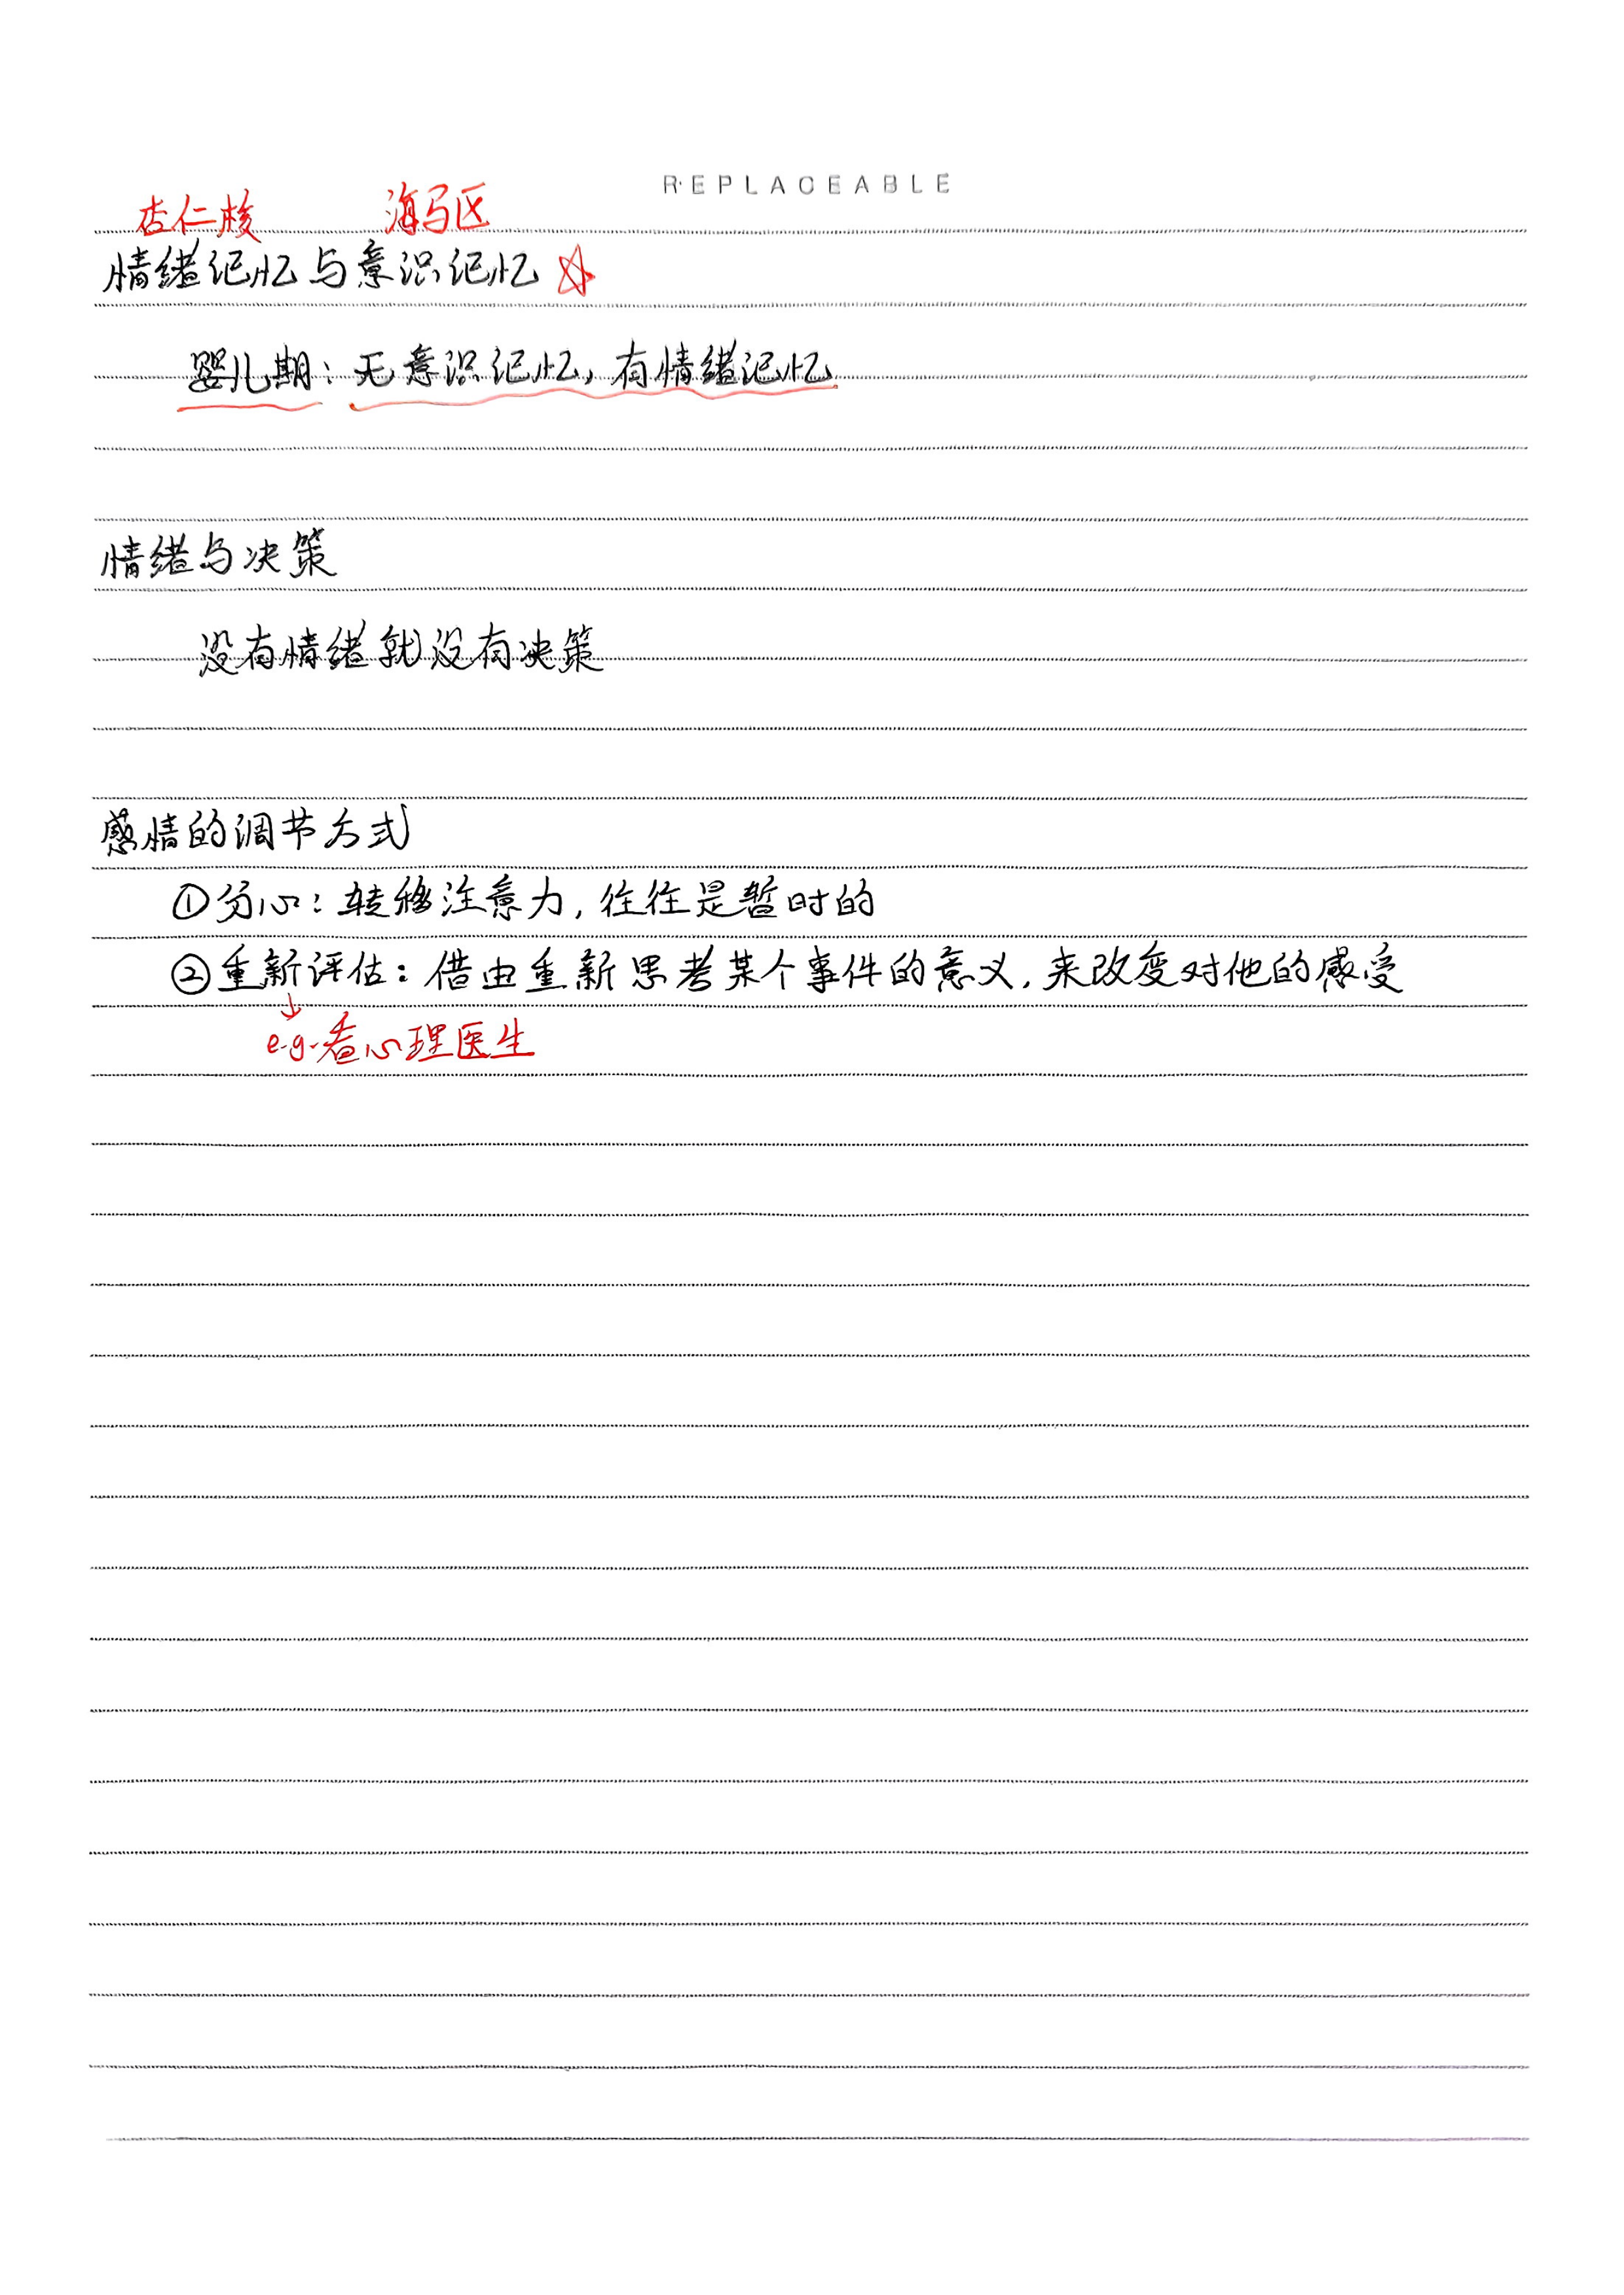 REPLACEABLE
杏仁核 海马区
情绪记忆与意识记忆 ☆
婴儿期：无意识记忆，有情绪记忆
情绪与决策
没有情绪就没有决策
感情的调节方式
①分心：转移注意力，往往是暂时的
②重新评估：借由重新思考某个事件的意义，来改变对他的感受
↓
e.g.看心理医生